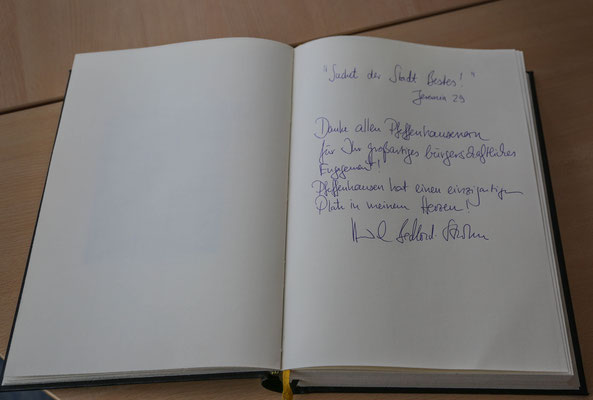 "Suchet der Stadt Bestes!"
Jeremia 29
Danke allen Pfeffenhausenern
für Ihr großartiges bürgerschaftliches
Engagement!
Pfeffenhausen hat einen einzigartigen
Platz in meinem Herzen!
Bedford-Strohm